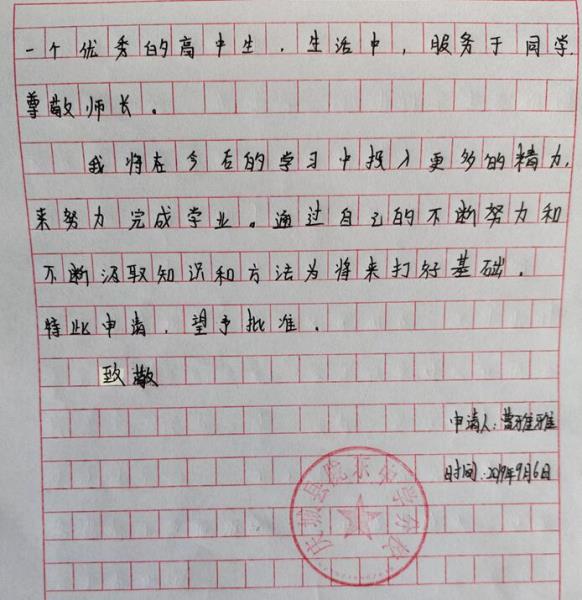 一个优秀的高中生，生活中，服务于同学，
尊敬师长。
我将在今后的学习中投入更多的精力，
来努力完成学业。通过自己的不断努力和
不断汲取知识和方法为将来打好基础。
特此申请，望予批准。
致敬
申请人：曹雅雅
时间：2019年9月6日
庆城县陇东中学